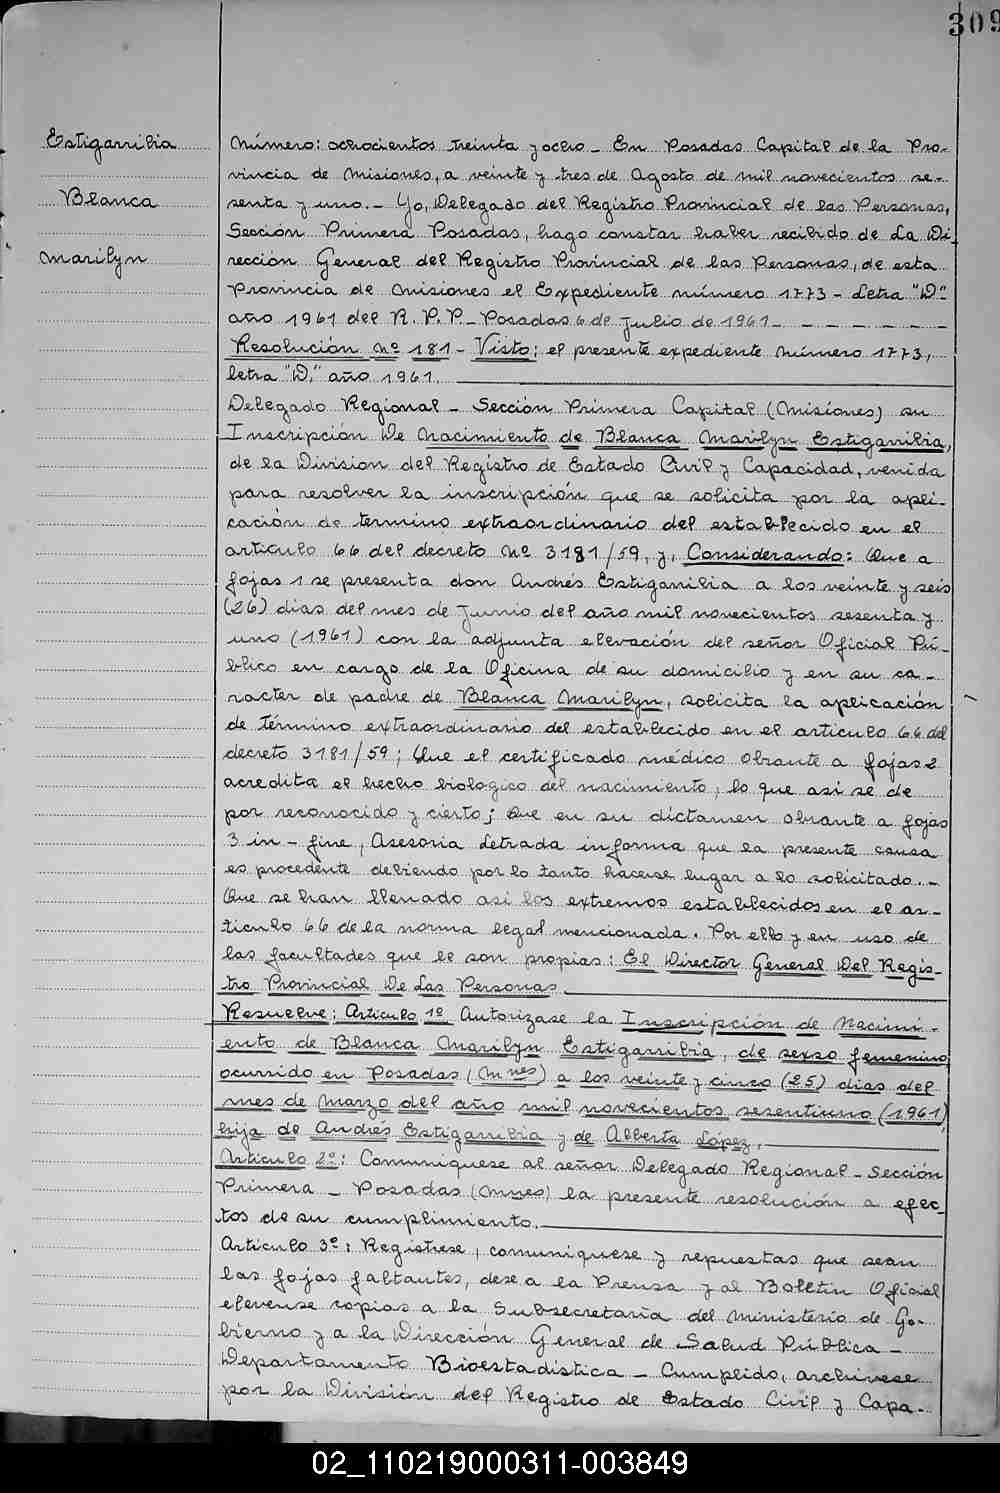 309
Estigarribia
Blanca
Marilyn
Número: ochocientos treinta y ocho - En Posadas Capital de la Pro-
vincia de Misiones, a veinte y tres de Agosto de mil novecientos se-
senta y uno. - Yo, Delegado del Registro Provincial de las Personas,
Sección Primera Posadas, hago constar haber recibido de La Di-
rección General del Registro Provincial de las Personas, de esta
Provincia de Misiones el Expediente número 1773 - Letra "D"
año 1961 del R.P.P. - Posadas 6 de Julio de 1961 - - - - - -
Resolución Nº 181 - Visto: el presente expediente número 1773,
letra "D," año 1961.
Delegado Regional - Sección Primera Capital (Misiones) su
Inscripción De Nacimiento de Blanca Marilyn Estigarribia,
de la Division del Registro de Estado Civil y Capacidad, venida
para resolver la inscripción que se solicita por la apli-
cación de termino extraordinario del establecido en el
articulo 66 del decreto Nº 3181/59, y, Considerando: Que a
fojas 1 se presenta don Andrés Estigarribia a los veinte y seis
(26) dias del mes de Junio del año mil novecientos sesenta y
uno (1961) con la adjunta elevación del señor Oficial Pú-
blico en cargo de la Oficina de su domicilio y en su ca-
racter de padre de Blanca Marilyn, solicita la aplicación
de término extraordinario del establecido en el articulo 66 del
decreto 3181/59; Que el certificado médico obrante a fojas 2
acredita el hecho biologico del nacimiento, lo que asi se de
por reconocido y cierto; Que en su dictamen obrante a fojas
3 in-fine, Asesoria Letrada informa que la presente causa
es procedente debiendo por lo tanto hacerse lugar a lo solicitado. -
Que se han llenado asi los extremos establecidos en el ar-
ticulo 66 de la norma legal mencionada. Por ello y en uso de
las facultades que le son propias: El Director General Del Regis-
tro Provincial De Las Personas
Resuelve: Articulo 1º Autorizase la Inscripción de Nacimi-
ento de Blanca Marilyn Estigarribia, de sexo femenino
ocurrido en Posadas (Mnes) a los veinte y cinco (25) dias del
mes de Marzo del año mil novecientos sesentiuno (1961)
hija de Andrés Estigarribia y de Alberta López.
Articulo 2º: Comuniquese al señor Delegado Regional - Sección
Primera - Posadas (Mnes) la presente resolución a efec-
tos de su cumplimiento.
Articulo 3º: Registrese, comuniquese y repuestas que sean
las fojas faltantes, dese a la Prensa y al Boletin Oficial
elevense copias a la Subsecretaría del Ministerio de Go-
bierno y a la Dirección General de Salud Pública -
Departamento Bioestadistica - Cumplido, archivese
por la División del Registro de Estado Civil y Capa-
02_110219000311-003849